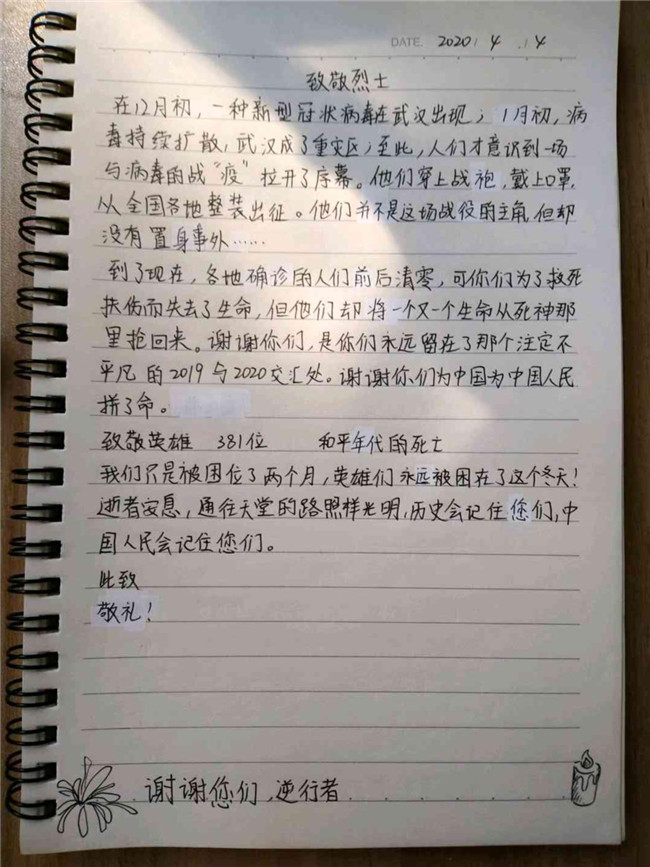 DATE. 2020 / 4 . / 4
致敬烈士
在12月初，一种新型冠状病毒在武汉出现；1月初，病
毒持续扩散，武汉成了重灾区；至此，人们才意识到一场
与病毒的战“疫”拉开了序幕。他们穿上战袍，戴上口罩，
从全国各地整装出征。他们并不是这场战役的主角，但却
没有置身事外……
到了现在，各地确诊的人们前后清零，可你们为了救死
扶伤而失去了生命，但他们却将一个又一个生命从死神那
里抢回来。谢谢你们，是你们永远留在了那个注定不
平凡的2019与2020交汇处。谢谢你们为中国为中国人民
拼了命。
致敬英雄 381位 和平年代的死士
我们只是被困位了两个月，英雄们永远被困在了这个冬天！
逝者安息，通往天堂的路照样光明，历史会记住您们，中
国人民会记住您们。
此致
敬礼！
谢谢您们，逆行者